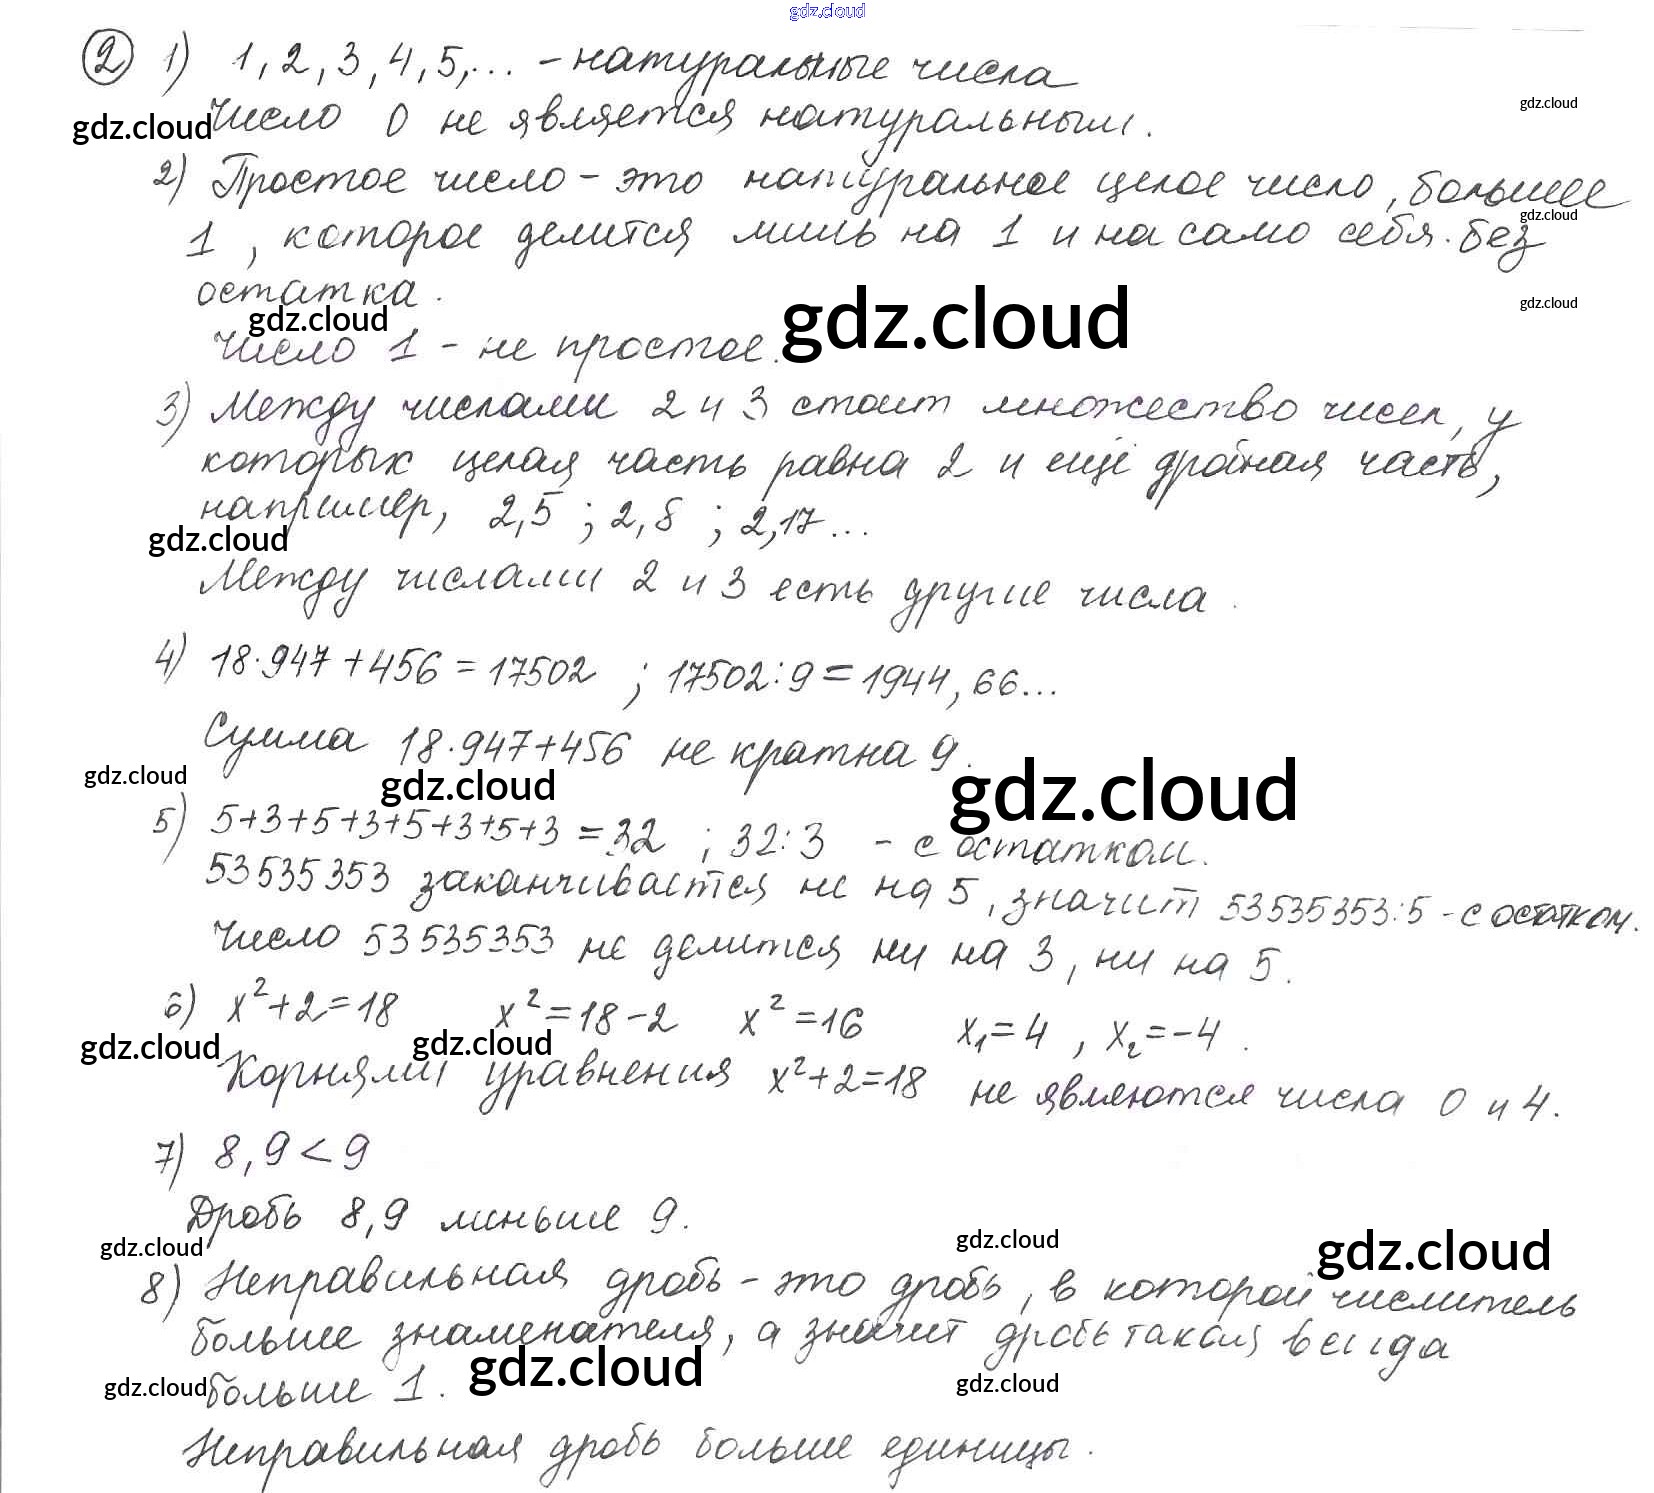 gdz.cloud
2 1) 1, 2, 3, 4, 5,... - натуральные числа
gdz.cloud
Число 0 не является натуральным.
gdz.cloud
2) Простое число - это натуральное целое число, большее
gdz.cloud
1, которое делится лишь на 1 и на само себя без
остатка.
gdz.cloud
gdz.cloud
gdz.cloud
Число 1 - не простое.
3) Между числами 2 и 3 стоит множество чисел, у
которых целая часть равна 2 и ещё дробная часть,
например, 2,5 ; 2,8 ; 2,17...
gdz.cloud
Между числами 2 и 3 есть другие числа.
4) 18·947+456=17502 ; 17502:9=1944,66...
Сумма 18·947+456 не кратна 9.
gdz.cloud
gdz.cloud
gdz.cloud
5) 5+3+5+3+5+3+5+3=32 ; 32:3 - с остатком.
53535353 заканчивается не на 5, значит 53535353:5 - с остатком.
Число 53535353 не делится ни на 3, ни на 5.
6) x²+2=18 x²=18-2 x²=16 x₁=4 , x₂=-4 .
gdz.cloud
gdz.cloud
Корнями уравнения x²+2=18 не являются числа 0 и 4.
7) 8,9<9
Дробь 8,9 меньше 9.
gdz.cloud
gdz.cloud
gdz.cloud
8) Неправильная дробь - это дробь, в которой числитель
больше знаменателя, а значит дробь такая всегда
gdz.cloud
gdz.cloud
gdz.cloud
больше 1.
Неправильная дробь больше единицы.